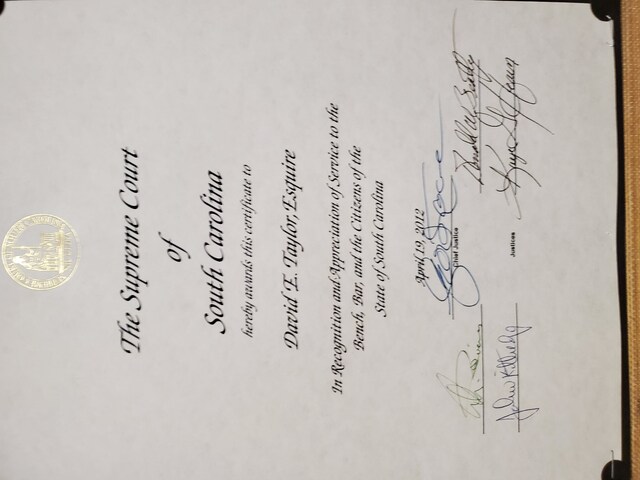 The Supreme Court
of
South Carolina
hereby awards this certificate to
David E. Taylor, Esquire
In Recognition and Appreciation of Service to the
Bench, Bar, and the Citizens of the
State of South Carolina
April 19, 2012
Chief Justice
Justices